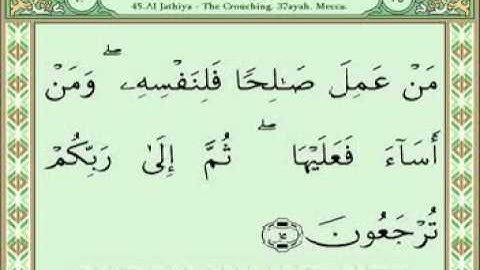 45.Al Jathiya - The Crouching. 37ayah. Mecca.
مَنْ عَمِلَ صَٰلِحًا فَلِنَفْسِهِۦ ۖ وَمَنْ
أَسَآءَ فَعَلَيْهَا ۖ ثُمَّ إِلَىٰ رَبِّكُمْ
تُرْجَعُونَ ١٥